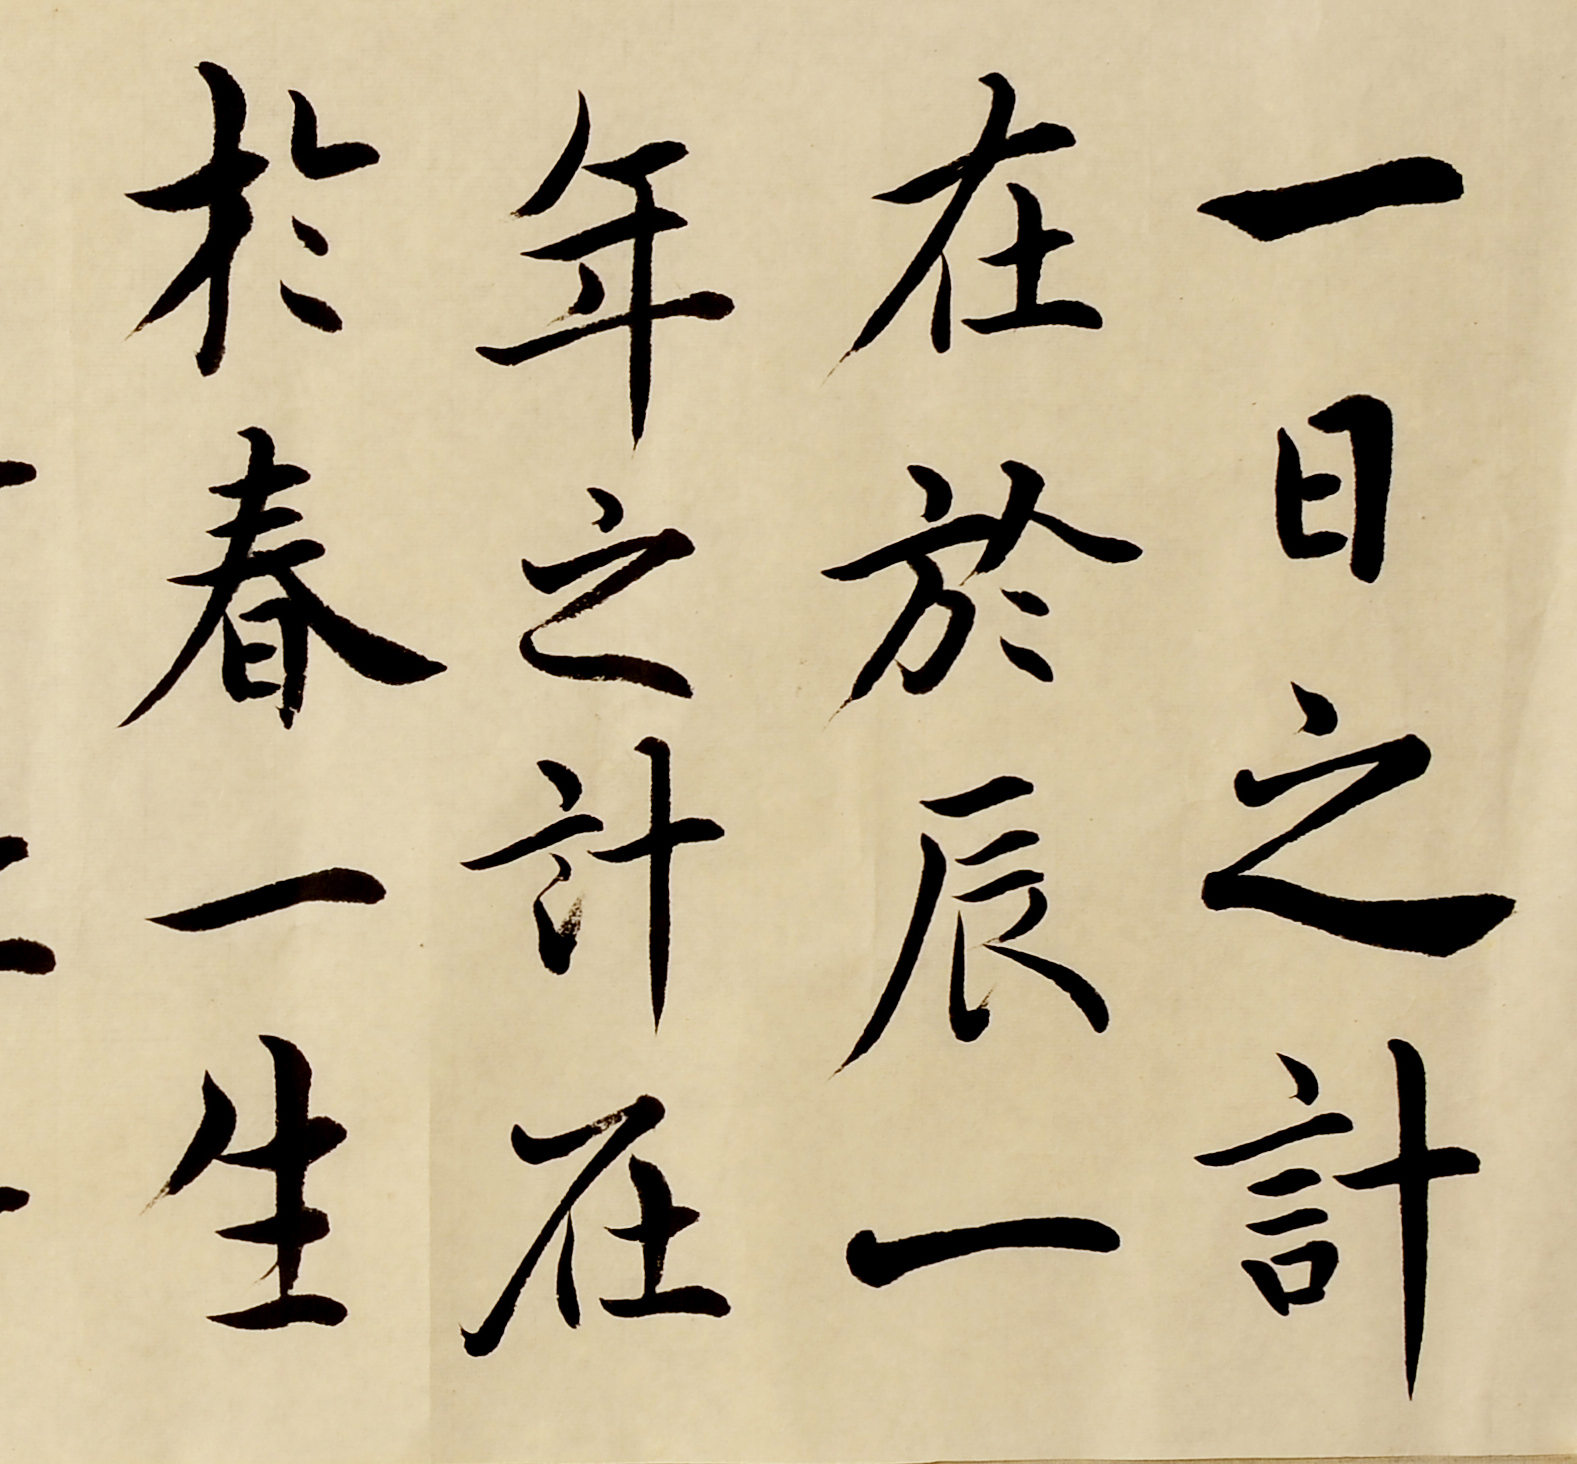 一日之計
在於辰一
年之計在
於春一生